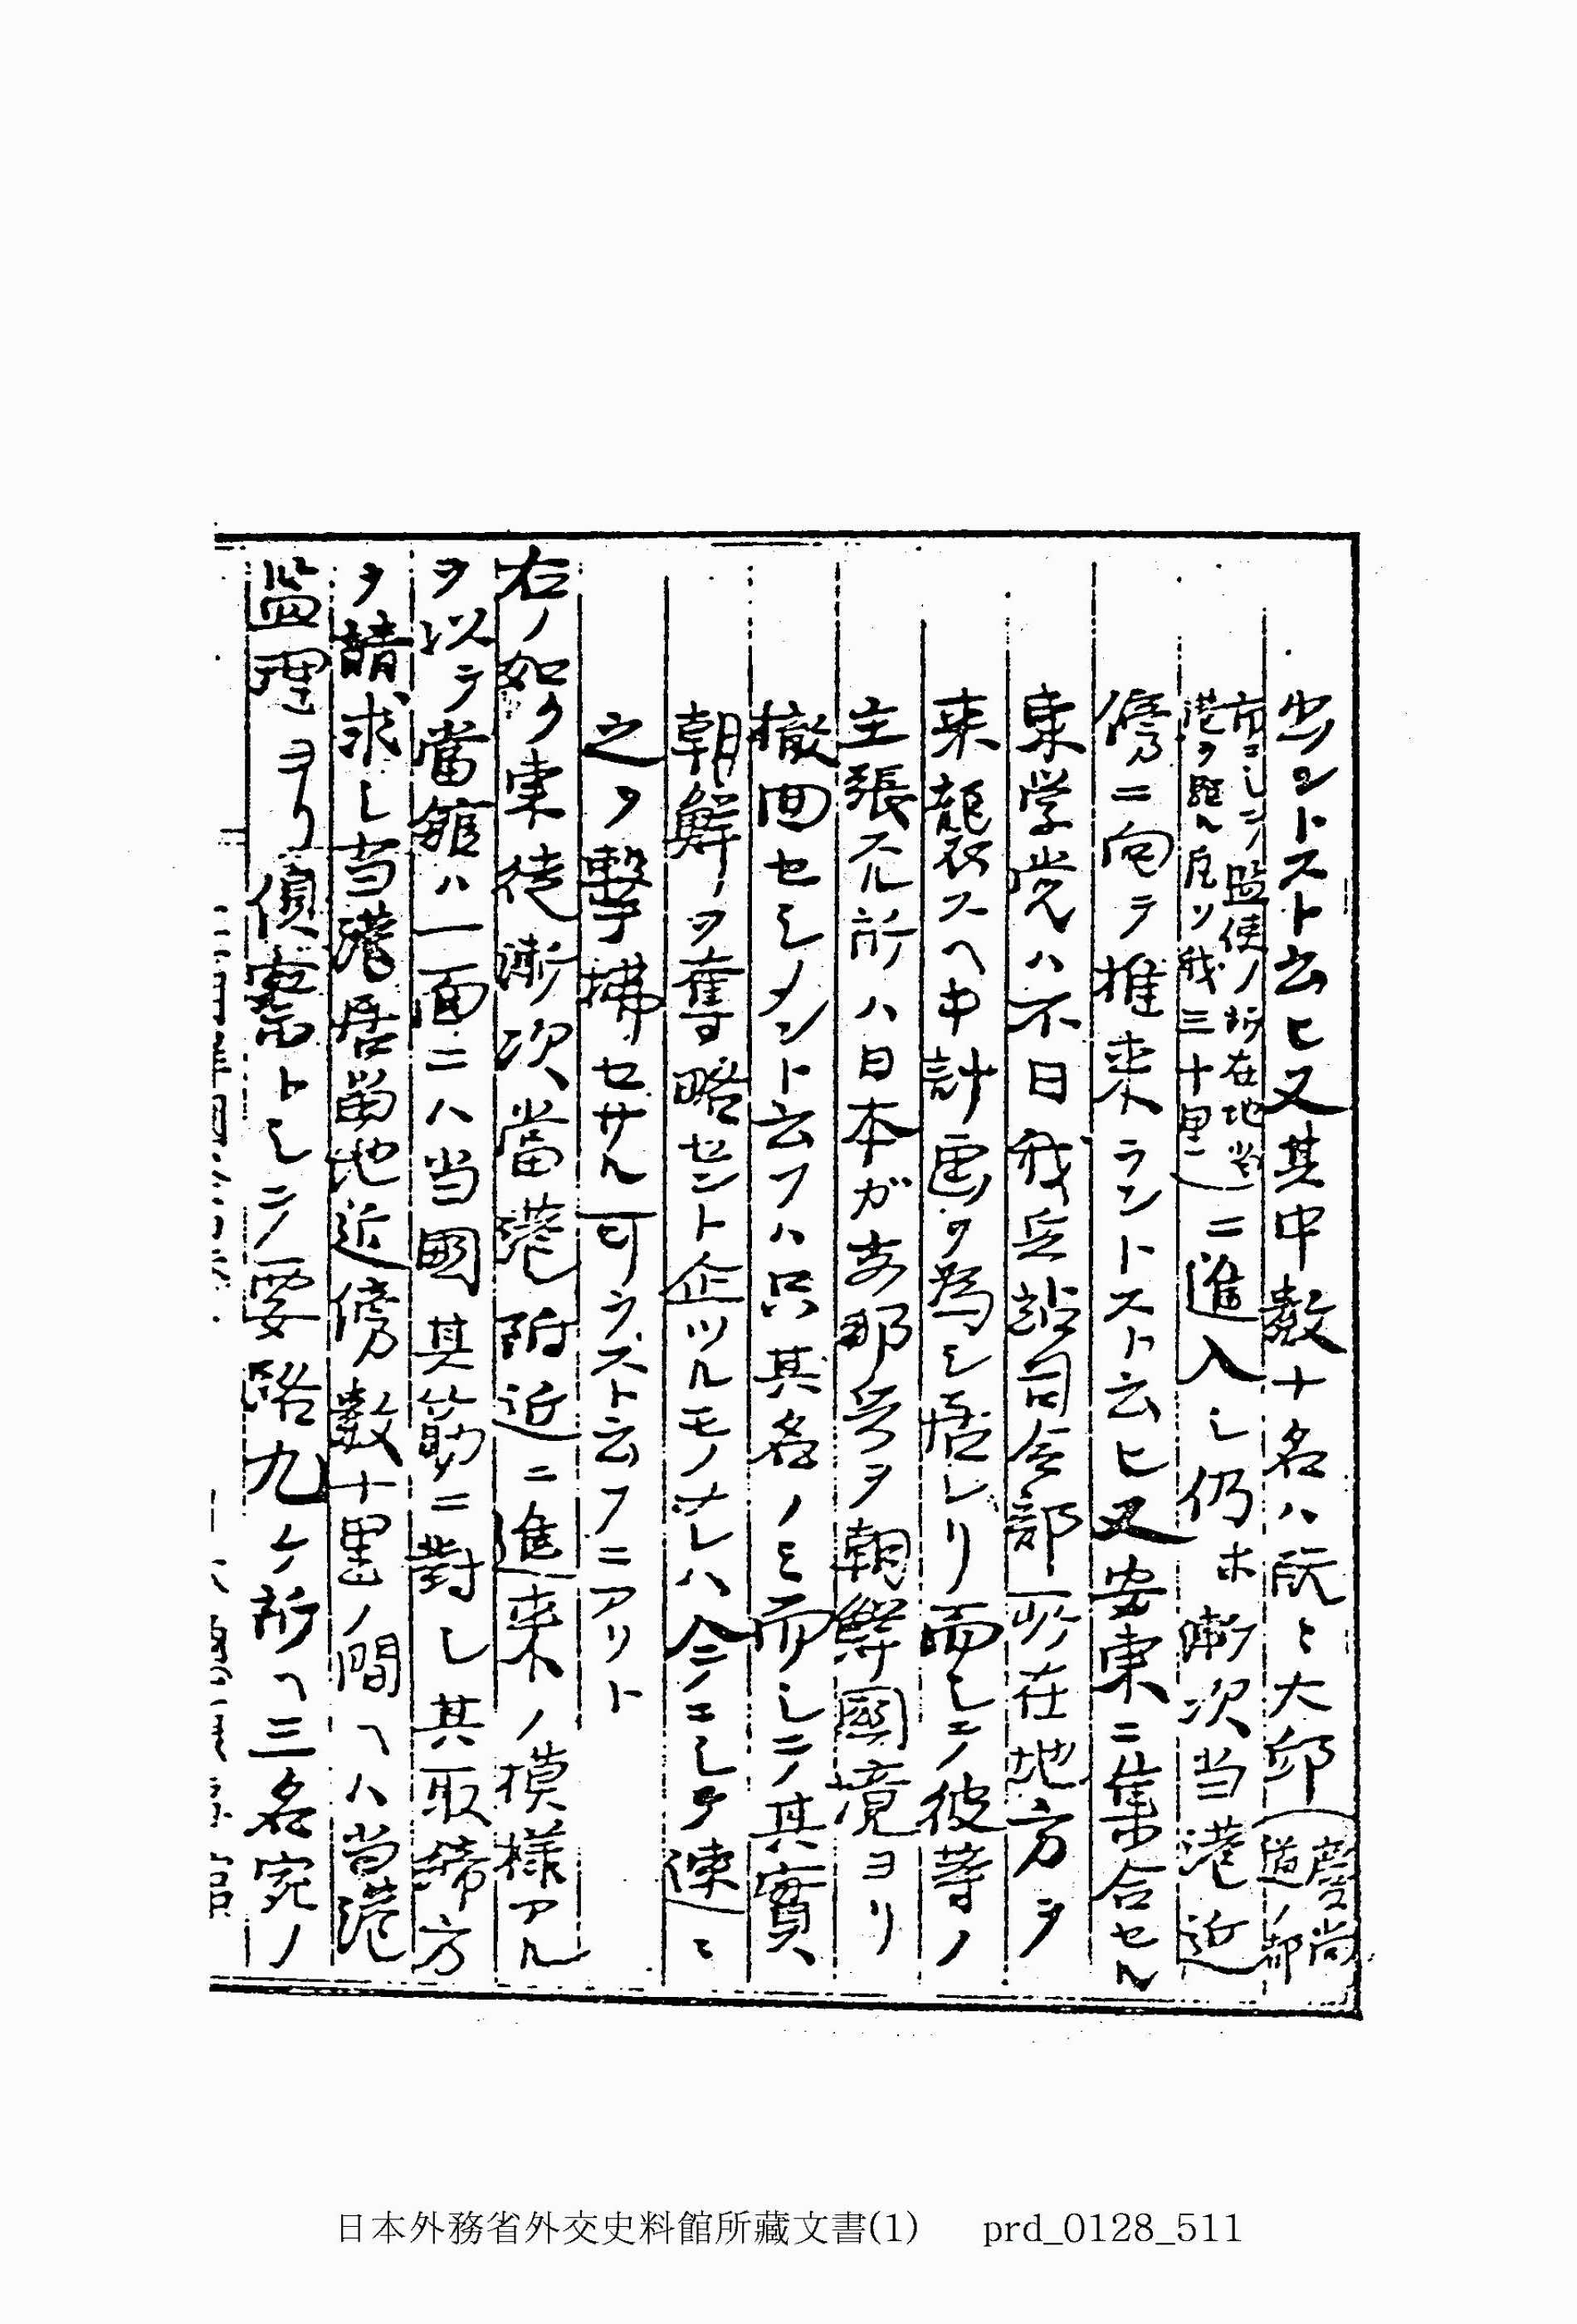 出ントスト云ヒ又其中数十名ハ既ニ大邱(慶尚道ノ都
府ニシテ監使ノ所在地当港ヲ距ル凡ソ我三十里)ニ進入シ仍ホ漸次当港近
傍ニ向テ推来ラントスト云ヒ又安東ニ集合セル
東学党ハ不日我兵站司令部所在地方ヲ
来襲スヘキ計画ヲ為シ居レリ而シテ彼等ノ
主張スル所ハ日本ガ支那兵ヲ朝鮮国境ヨリ
撤回セシメント云フハ只其名ノミ而シテ其實
朝鮮ヲ奪略セント企ツルモノナレハ今ニシテ速ニ
之ヲ撃攘セサル可ラズト云フニアリト
右ノ如ク東徒漸次當港附近ニ進来ノ模様アル
ヲ以テ當館ハ一面ニハ当國其筋ニ對シ其取締方
ヲ請求シ当港居留地近傍數十里ノ間ヘハ当港
監理ヨリ偵察トシテ要路九ヶ所ヘ三名宛ノ
日本外務省外交史料館所藏文書(1) prd_0128_511